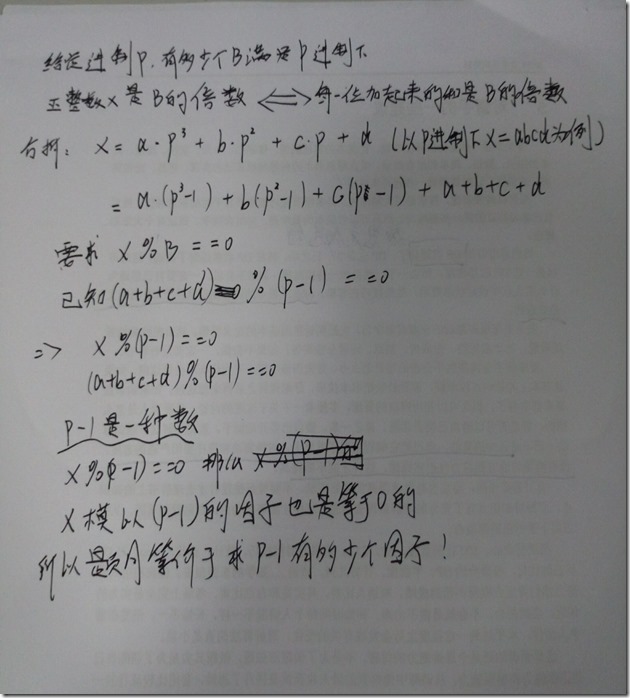 给定进制P,有多少个B满足P进制下
正整数x是B的倍数 <=> 每一位加起来的和是B的倍数
分析: X = a·p³ + b·p² + c·p + d (以P进制下x=abcd为例)
= a·(p³-1) + b(p²-1) + c(p-1) + a+b+c+d
要求 X % B ==0
已知(a+b+c+d) % (p-1) ==0
=> X %(p-1)==0
(a+b+c+d)%(p-1)==0
p-1是一种数
X%(p-1)==0 那么 x%(p-1)的
X模以(p-1)的因子也是等于0的
所以题目等价于求p-1有多少个因子!